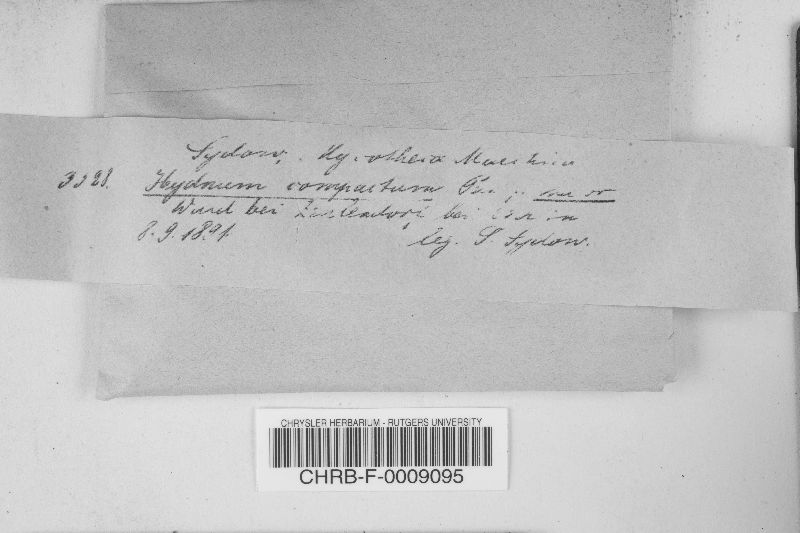 Sydow, Mycotheca Marchica
3328. Hydnum compactum Pers.
Wald bei bei
8.9.1891. leg. P. Sydow.
CHRYSLER HERBARIUM - RUTGERS UNIVERSITY
CHRB-F-0009095